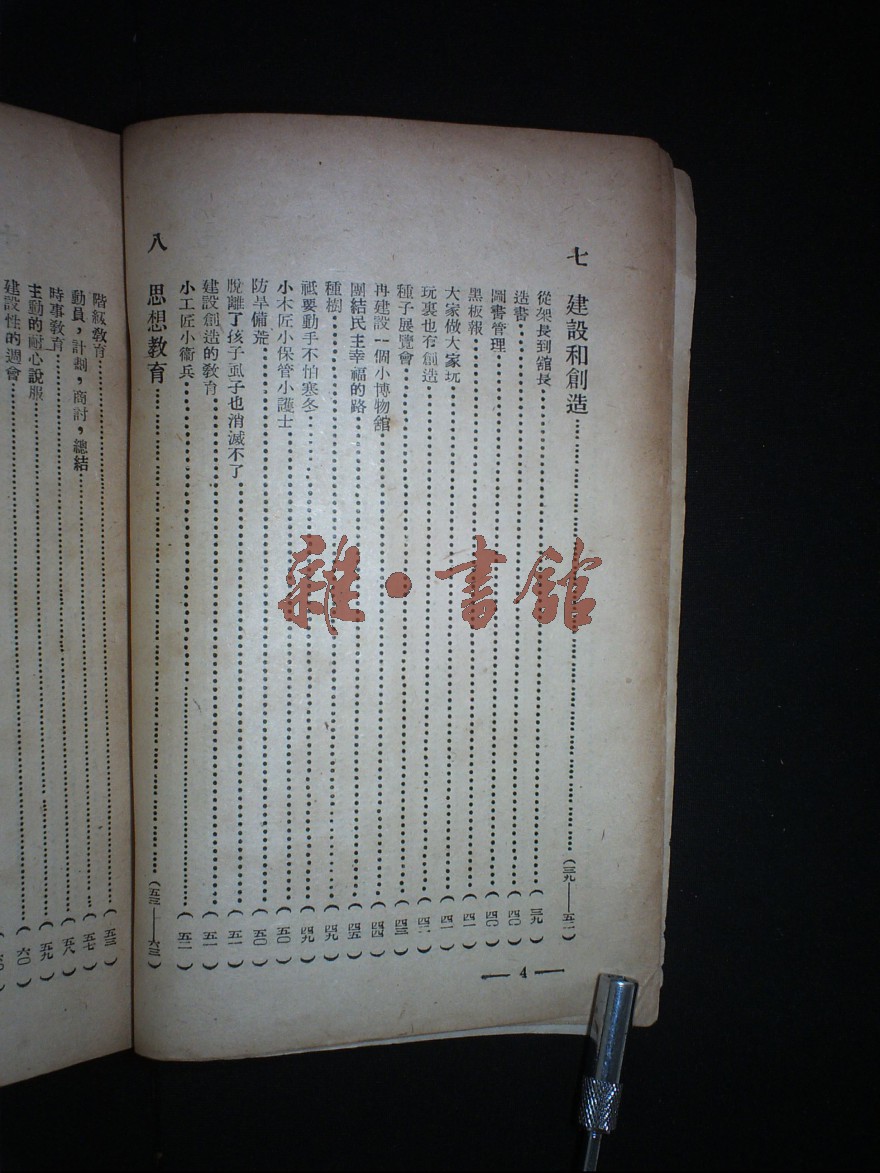 七 建設和創造……(三九——五二)
從架長到舘長……(三九)
造書……(四〇)
圖書管理……(四〇)
黑板報……(四一)
大家做大家玩……(四一)
玩裏也有創造……(四二)
種子展覽會……(四三)
再建設一個小博物舘……(四四)
團結民主幸福的路……(四五)
種樹……(四九)
祇要動手不怕寒冬……(四九)
小木匠小保管小護士……(五〇)
防旱備荒……(五〇)
脫離了孩子虱子也消滅不了……(五一)
建設創造的敎育……(五一)
小工匠小衞兵……(五二)
八 思想敎育……(五三——六三)
— 4 —
階級敎育……(五三)
動員，計劃，商討，總結……(五七)
時事敎育……(五八)
主動的耐心說服……(五九)
建設性的週會……(六〇)
雜·書舘